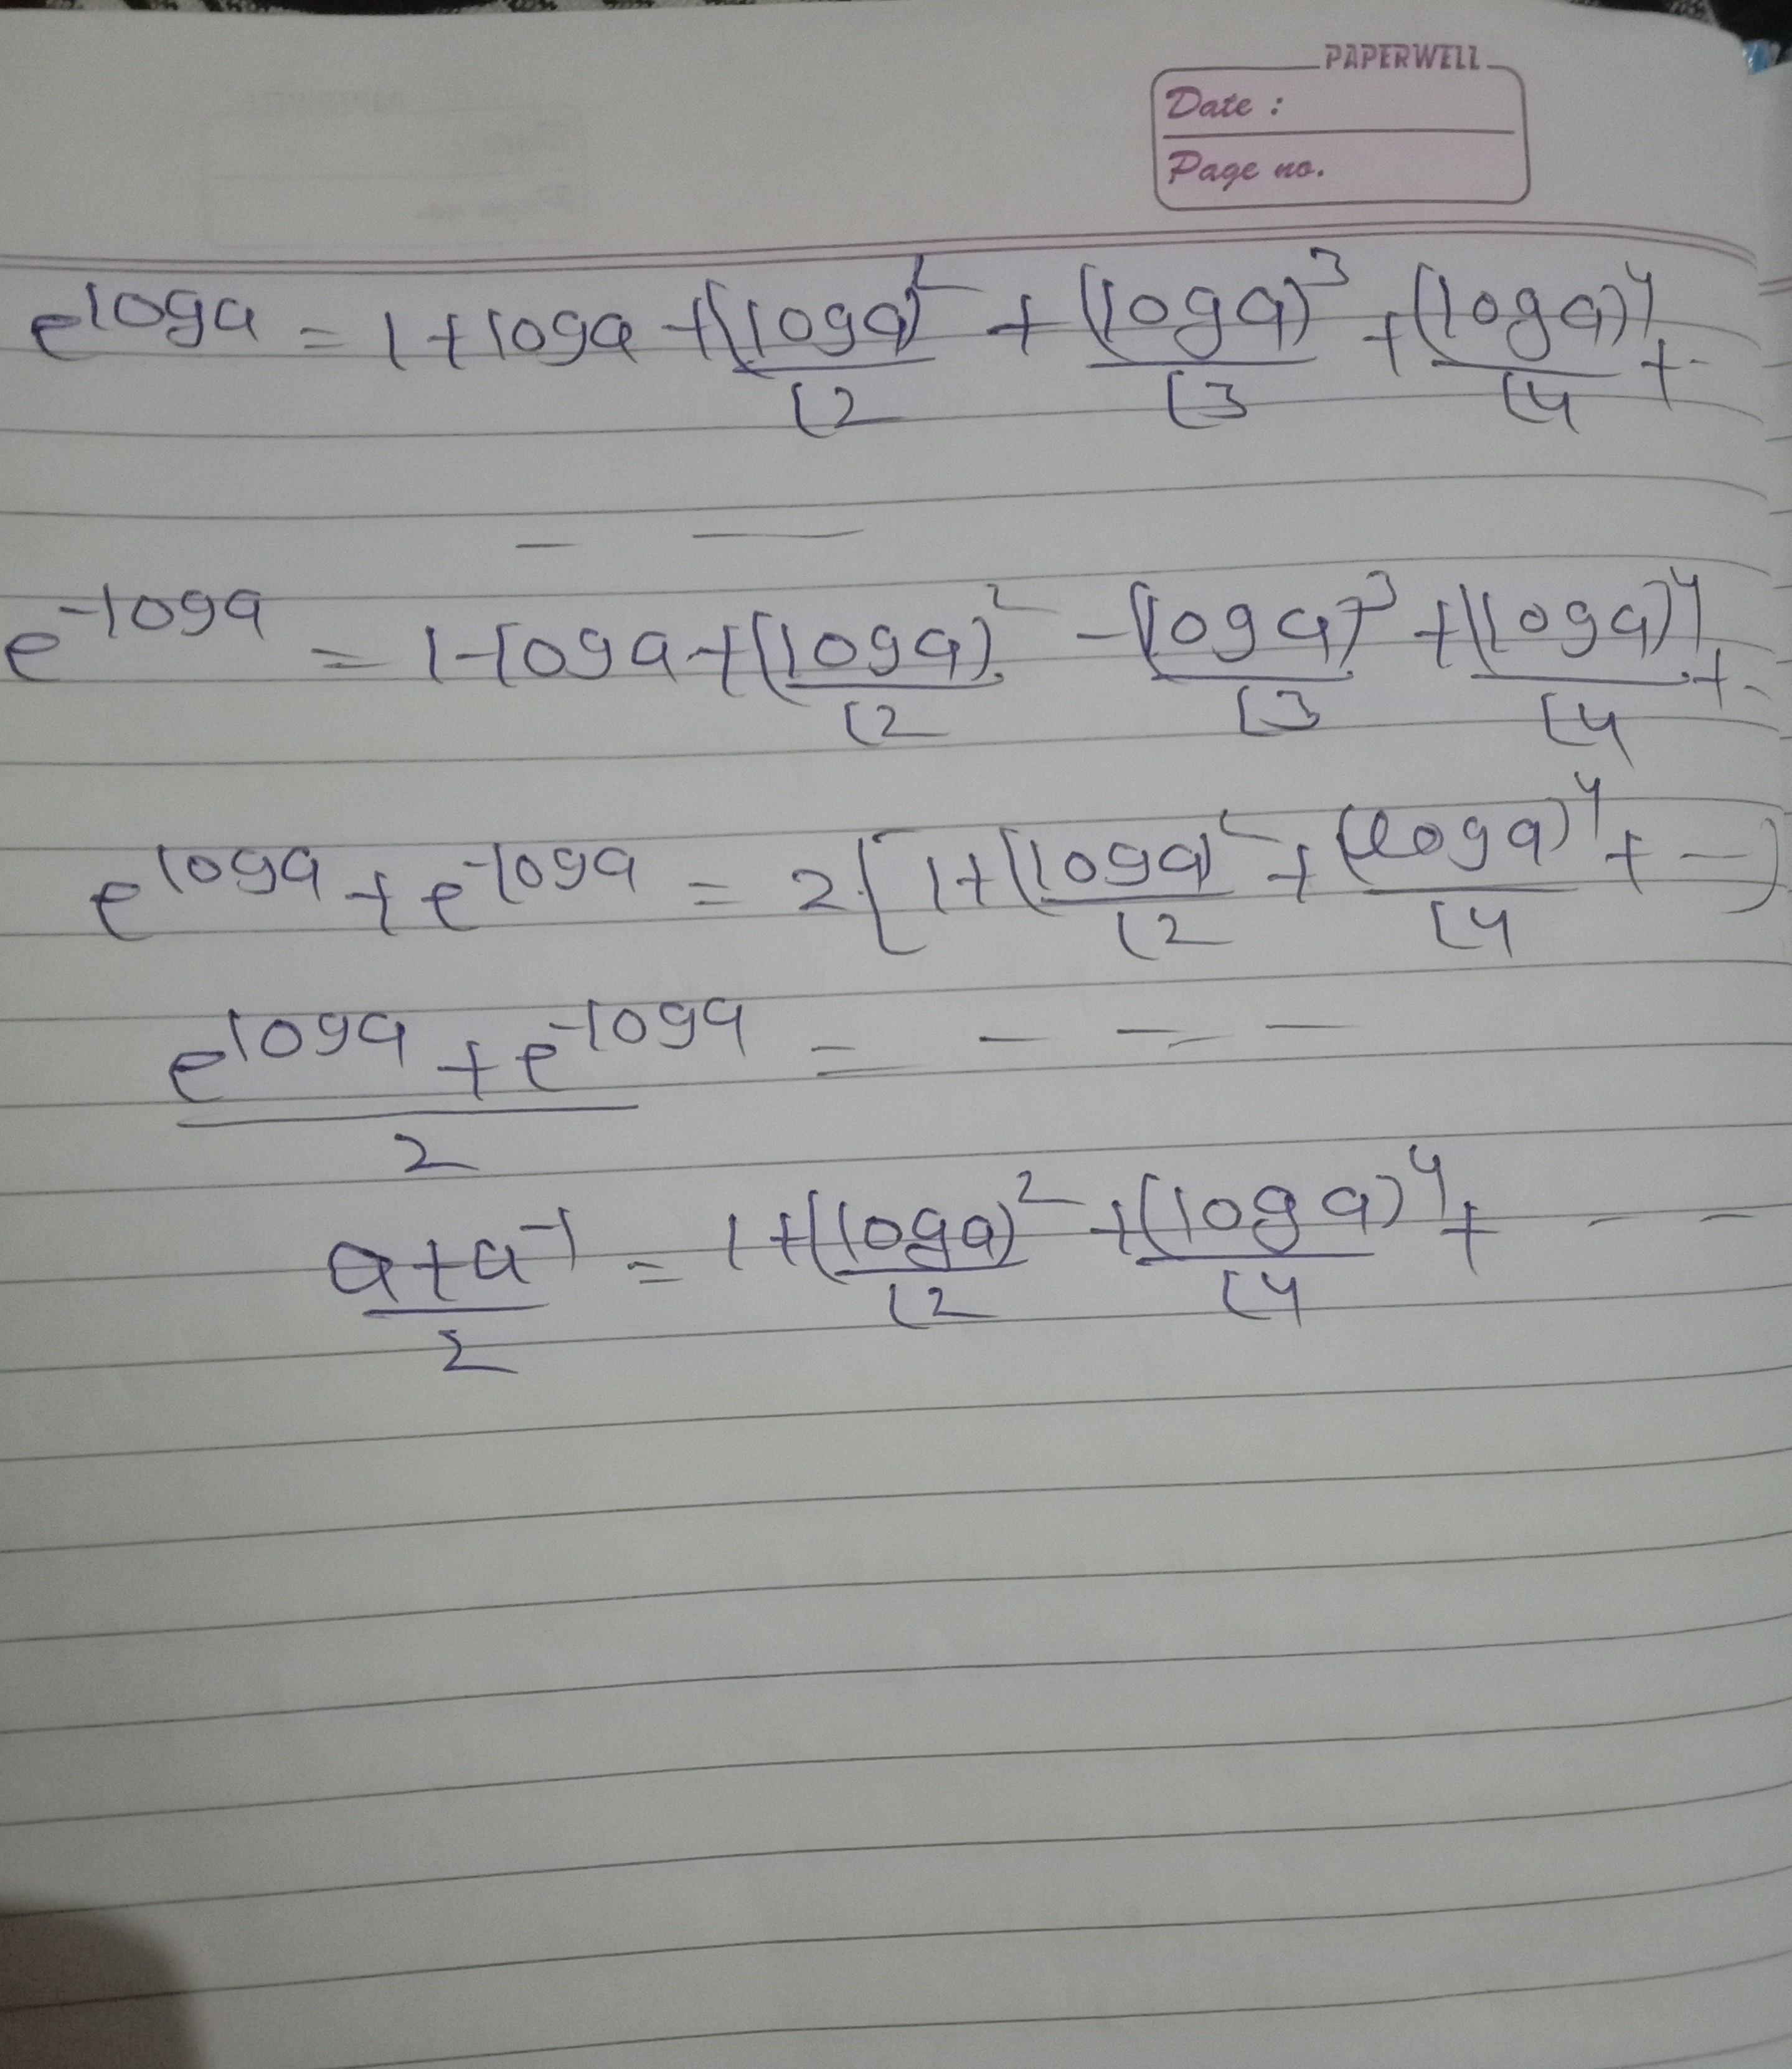 PAPERWELL
Date :
Page no.
e^{log a} = 1 + log a + (log a)^2/⌊2 + (log a)^3/⌊3 + (log a)^4/⌊4 + -
- —
e^{-log a} = 1 - log a + (log a)^2/⌊2 - (log a)^3/⌊3 + (log a)^4/⌊4 + -
e^{log a} + e^{-log a} = 2 [1 + (log a)^2/⌊2 + (log a)^4/⌊4 + -]
(e^{log a} + e^{-log a})/2 = - - -
(a + a^{-1})/2 = 1 + (log a)^2/⌊2 + (log a)^4/⌊4 + - -